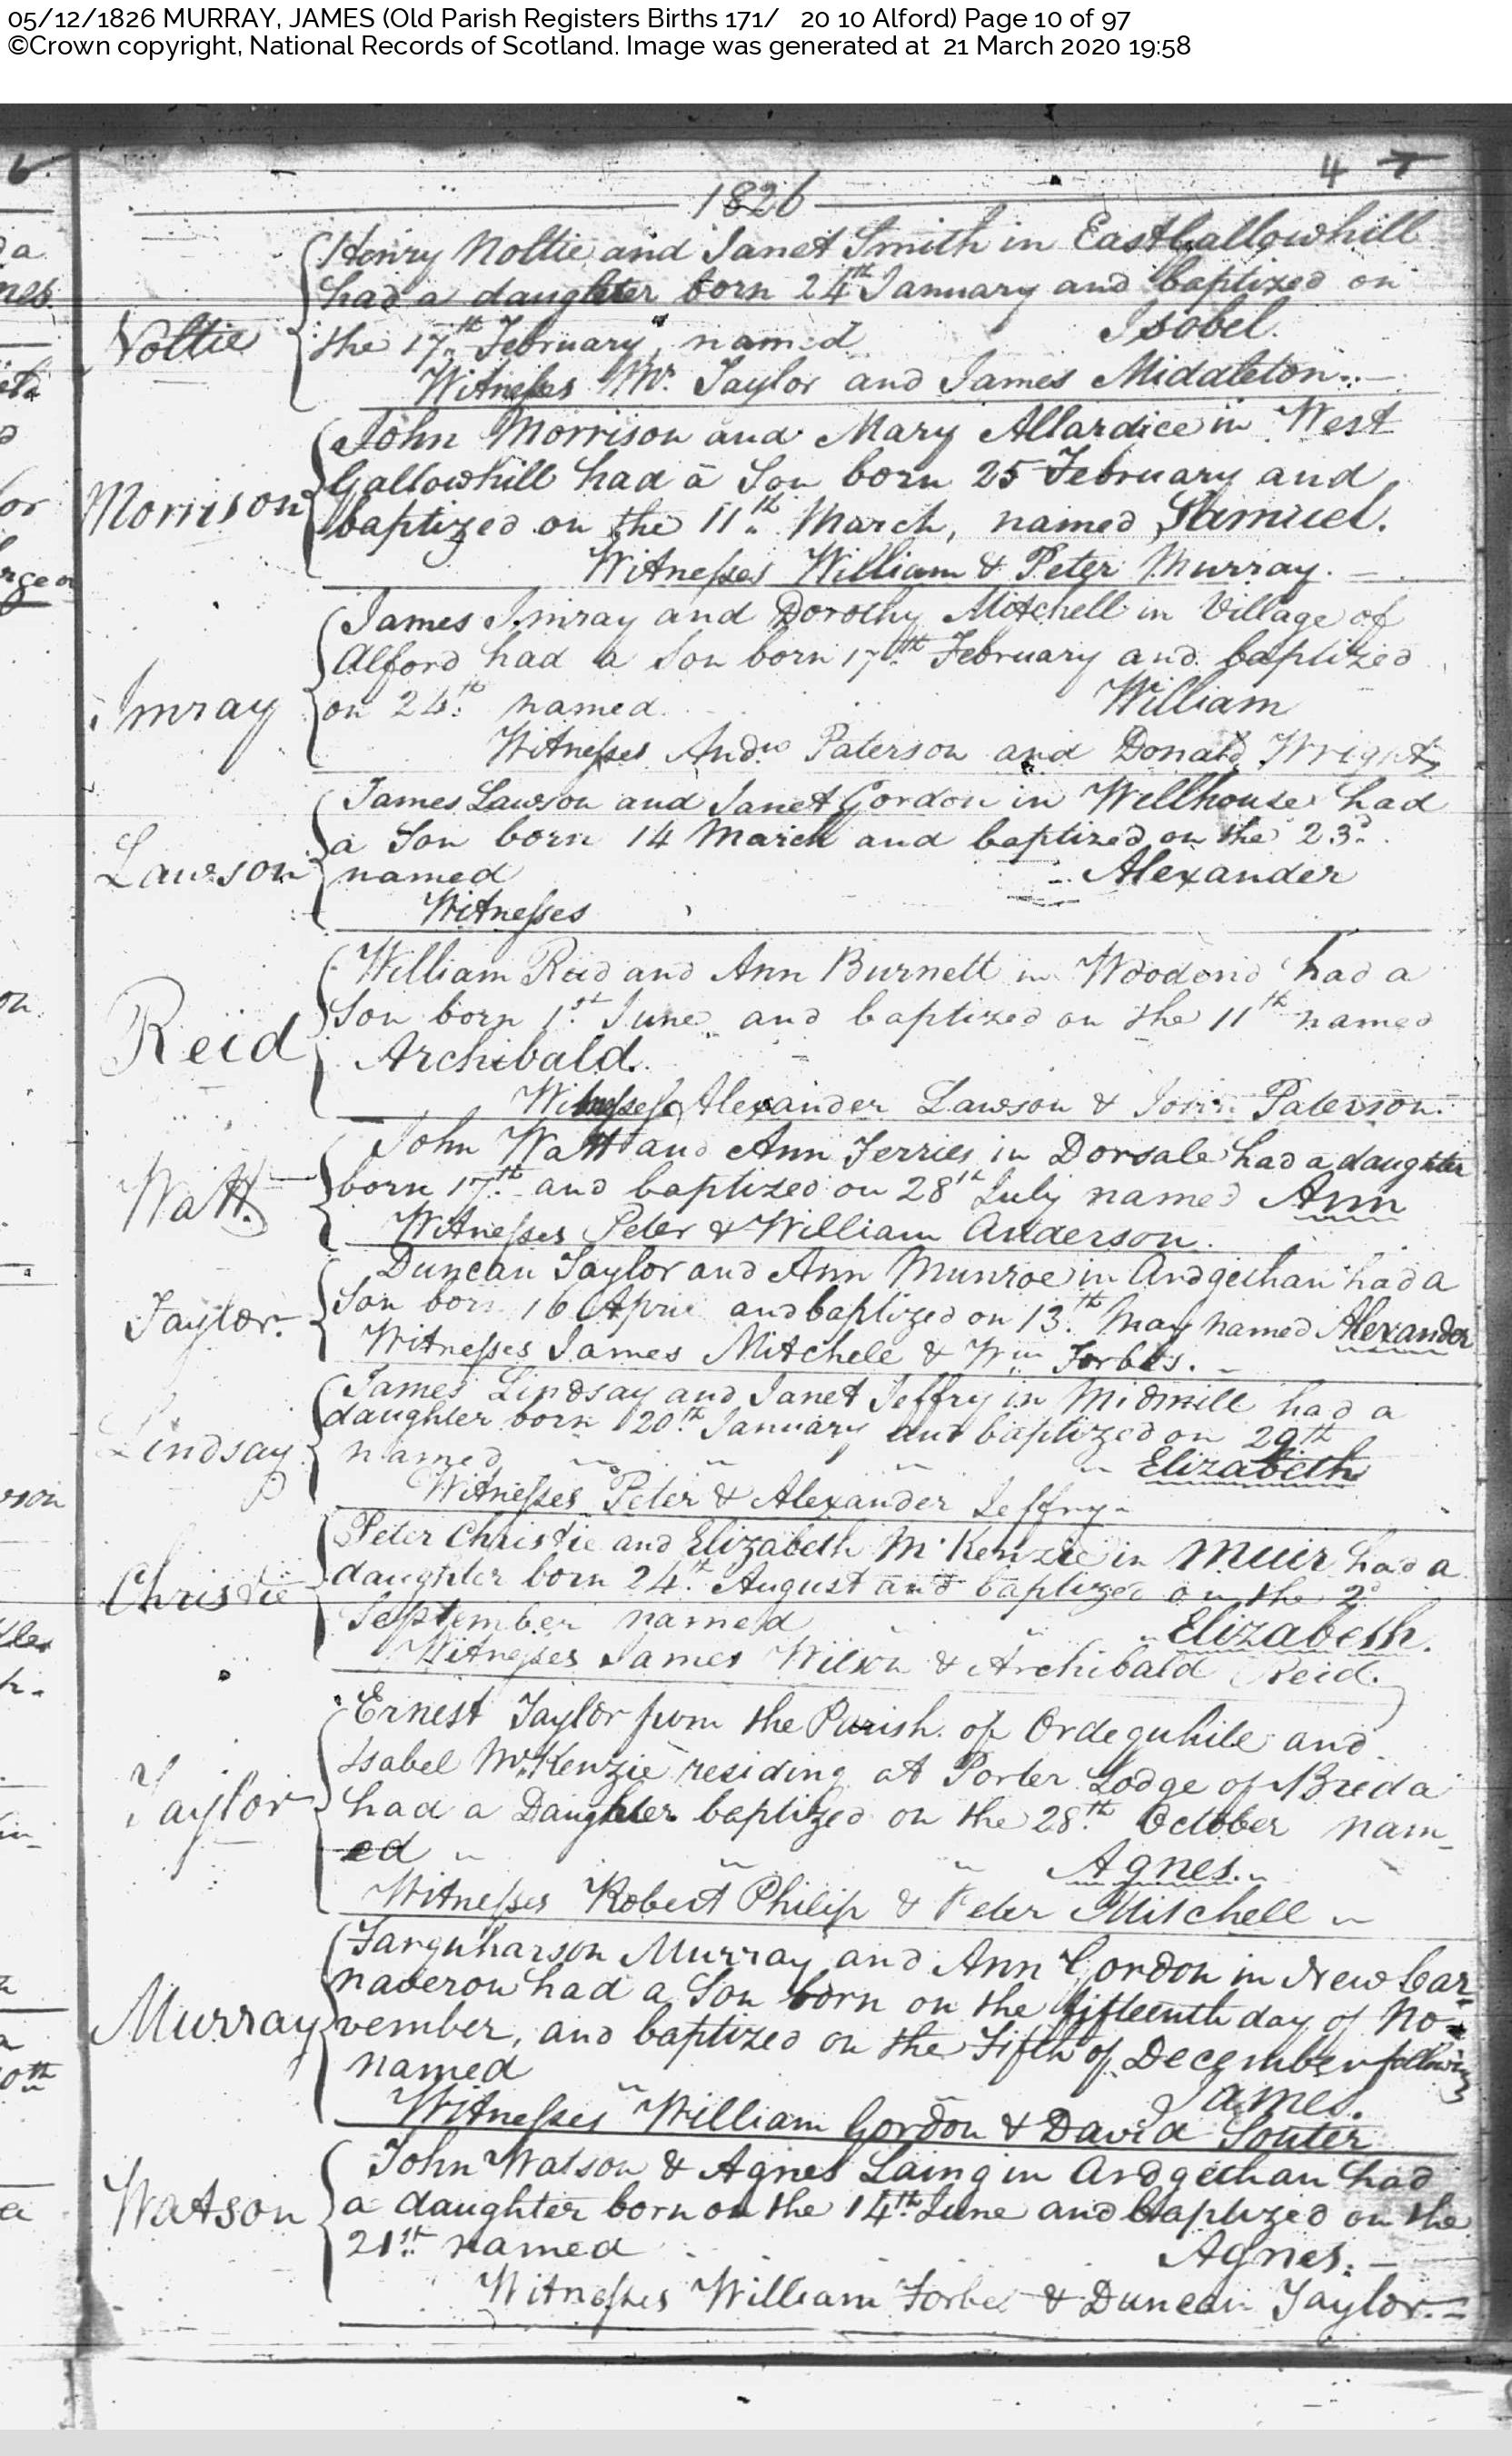 05/12/1826 MURRAY, JAMES (Old Parish Registers Births 171/ 20 10 Alford) Page 10 of 97
©Crown copyright, National Records of Scotland. Image was generated at 21 March 2020 19:58
4 7
1826
Henry Noltie and Janet Smith in East Gallowhill
had a daughter born 24th January and baptized on
Noltie
the 17th February, named Isobel.
Witnesses Mr. Taylor and James Middleton.
John Morrison and Mary Allardice in West
Gallowhill had a Son born 25 February and
Morrison
baptized on the 11th March, named Samuel.
Witnesses William & Peter Murray.
James Imray and Dorothy Mitchell in Village of
Alford had a Son born 17th February and baptized
Imray
on 24th named William
Witnesses Andw Paterson and Donald Wright
James Lawson and Janet Gordon in Wellhouse had
a Son born 14 March and baptized on the 23d.
Lawson
named Alexander
Witnesses
William Reid and Ann Burnett in Woodend had a
Son born 1st June and baptized on the 11th named
Reid
Archibald.
Witnesses Alexander Lawson & John Paterson.
John Watt and Ann Ferries in Dorsale had a daughter
Watt
born 17th and baptized on 28th July named Ann
Witnesses Peter & William Anderson.
Duncan Taylor and Ann Munroe in Ardgethan had a
Taylor.
Son born 16 April and baptized on 13th May named Alexander
Witnesses James Mitchell & Wm Forbes.
James Lindsay and Janet Jeffry in Midmill had a
daughter born 20th January and baptized on 29th
Lindsay
named Elizabeth
Witnesses Peter & Alexander Jeffry
Peter Christie and Elizabeth McKenzie in Muir had a
Christie
daughter born 24th August and baptized on the 2d
September named Elizabeth.
Witnesses James Wilson & Archibald Reid.
Ernest Taylor from the Parish of Ordequhile and
Isabel McKenzie residing at Porter Lodge of Breda
Taylor
had a Daughter baptized on the 28th October nam-
ed Agnes.
Witnesses Robert Philip & Peter Mitchell
Farquharson Murray and Ann Gordon in New Car-
naveron had a Son born on the fifteenth day of No-
Murray
vember, and baptized on the Fifth of December following
named James.
Witnesses William Gordon & David Souter
John Watson & Agnes Laing in Ardgethan had
Watson
a daughter born on the 14th June and baptized on the
21st named Agnes.
Witnesses William Forbes & Duncan Taylor.